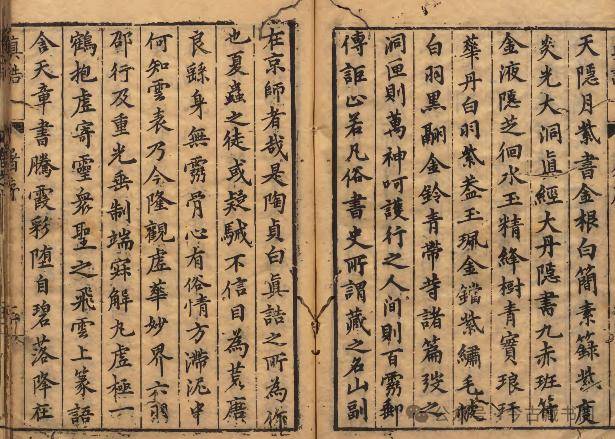 天隱月紫書金根白簡素籙紫度
炎光大洞眞經大丹隱書九赤班簡
金液隱芝徊水玉精絳樹青實琅玕
華丹白羽紫蓋玉珮金鐺紫繡毛帔
白羽黑翮金鈴青帶苛諸篇笈之
洞匣則萬神呵護行之人間則百靈郵
傳詎止若凡俗書史所謂藏之名山副
在京師者哉是陶貞白眞誥之所為作
也夏蟲之徒或疑駴不信目為荒唐
良繇身無靈骨心有俗情方滯泥中
何知雲表乃今隆觀虛華妙界六羽
邵行及重光垂制端寀解九虛極一
鶴抱虛寄靈衆聖之飛雲上篆語
含天章書騰霞彩堕自碧落降在
眞誥
序
公众号
古藏书